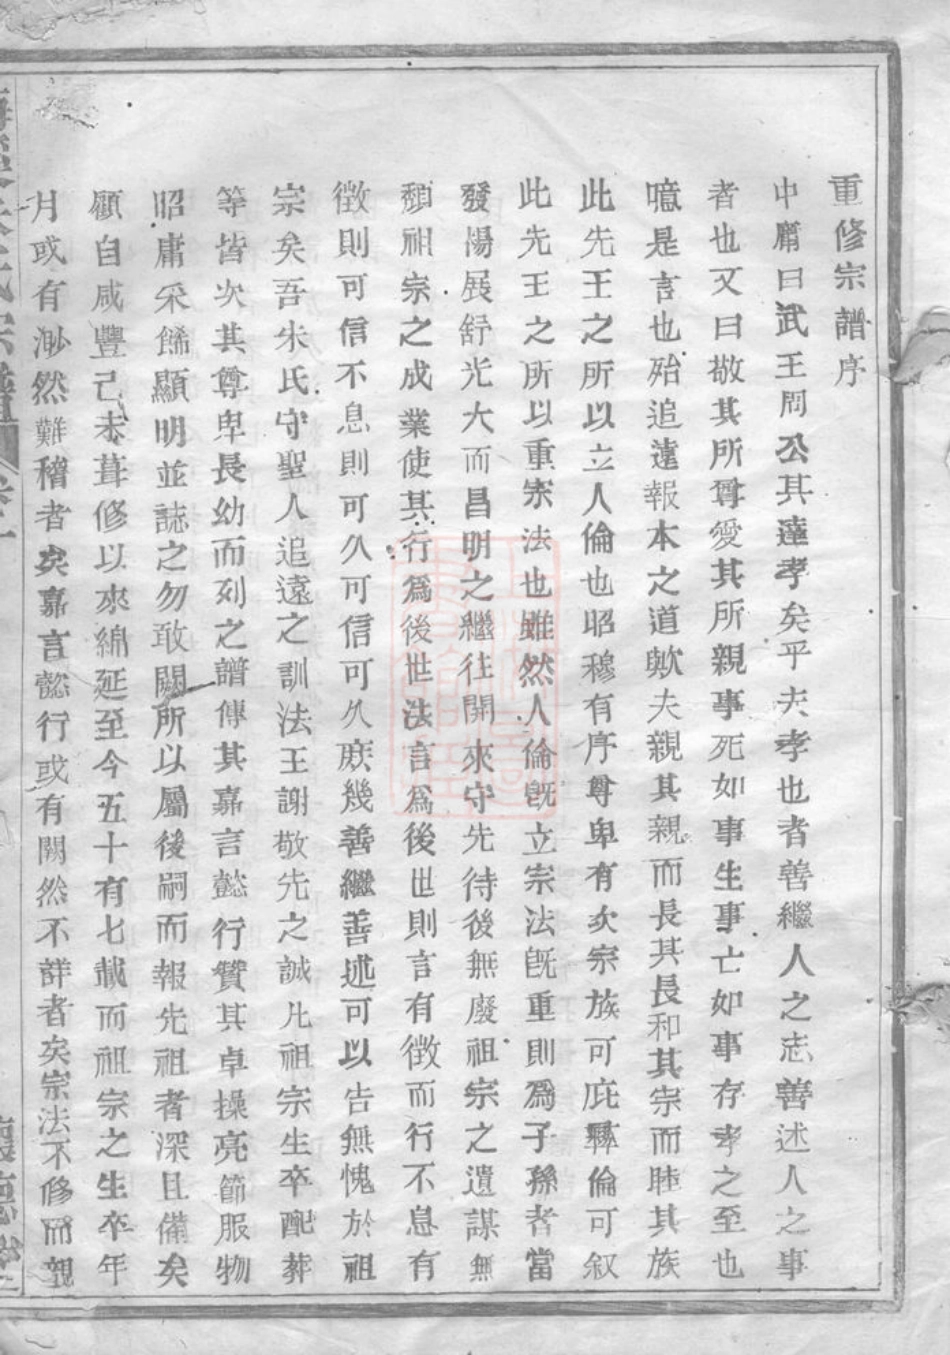 重修宗譜序
中庸曰武王周公其達孝矣乎夫孝也者善繼人之志善述人之事
者也又曰敬其所尊愛其所親事死如事生事亡如事存孝之至也
噫是言也殆追遠報本之道歟夫親其親而長其長和其宗而睦其族
此先王之所以立人倫也昭穆有序尊卑有次宗族可庇彝倫可叙
此先王之所以重宗法也雖然人倫既立宗法既重則爲子孫者當
發揚展舒光大而昌明之繼往開來守先待後無廢祖宗之遺謀無
頹祖宗之成業使其行爲後世法言爲後世則言有徵而行不息有
徵則可信不息則可久可信可久庶幾善繼善述可以告無愧於祖
宗矣吾朱氏守聖人追遠之訓法王謝敬先之誠凡祖宗生卒配葬
等皆次其尊卑長幼而列之譜傳其嘉言懿行贊其卓操亮節服物
昭庸采餙顯明並誌之勿敢闕所以屬後嗣而報先祖者深且備矣
顧自咸豐己未葺修以來綿延至今五十有七載而祖宗之生卒年
月或有渺然難稽者矣嘉言懿行或有闕然不詳者矣宗法不修而親